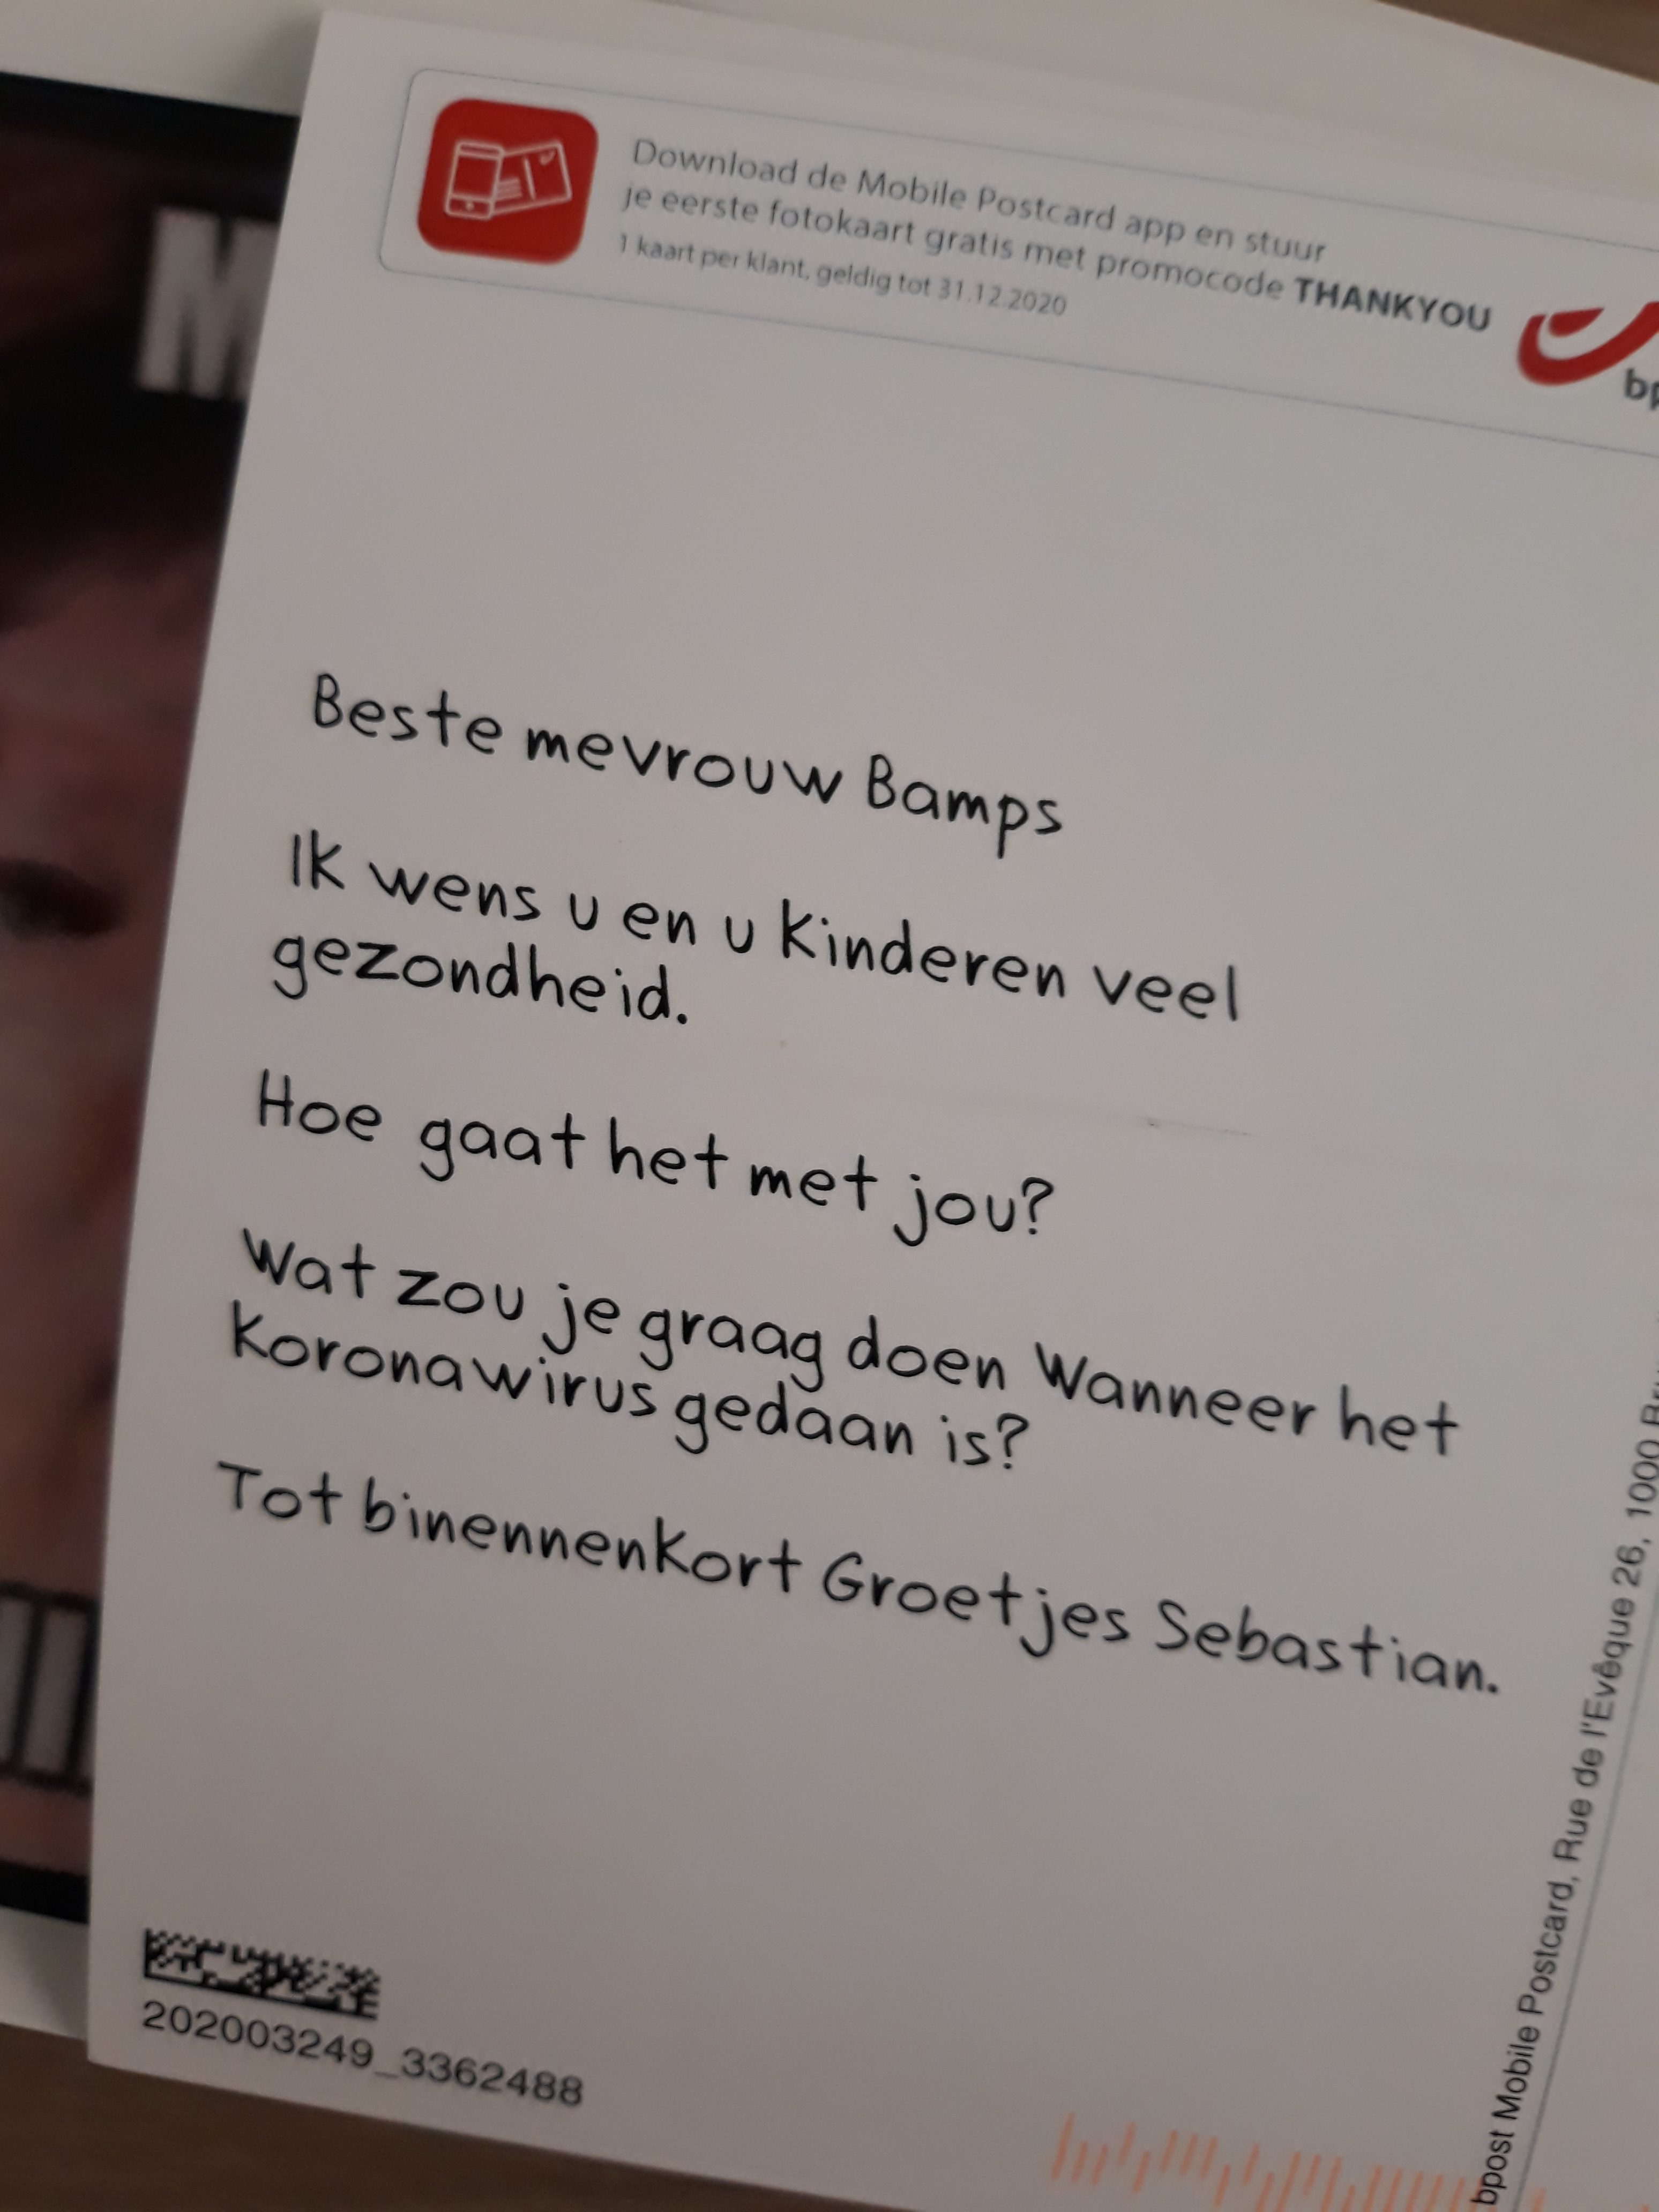 M
Download de Mobile Postcard app en stuur
je eerste fotokaart gratis met promocode THANKYOU
1 kaart per klant, geldig tot 31.12.2020
Beste mevrouw Bamps
Ik wens u en u kinderen veel
gezondheid.
Hoe gaat het met jou?
Wat zou je graag doen Wanneer het
Koronawirus gedaan is?
Tot binennenkort Groetjes Sebastian.
202003249_3362488
bpost Mobile Postcard, Rue de l'Evêque 26, 1000